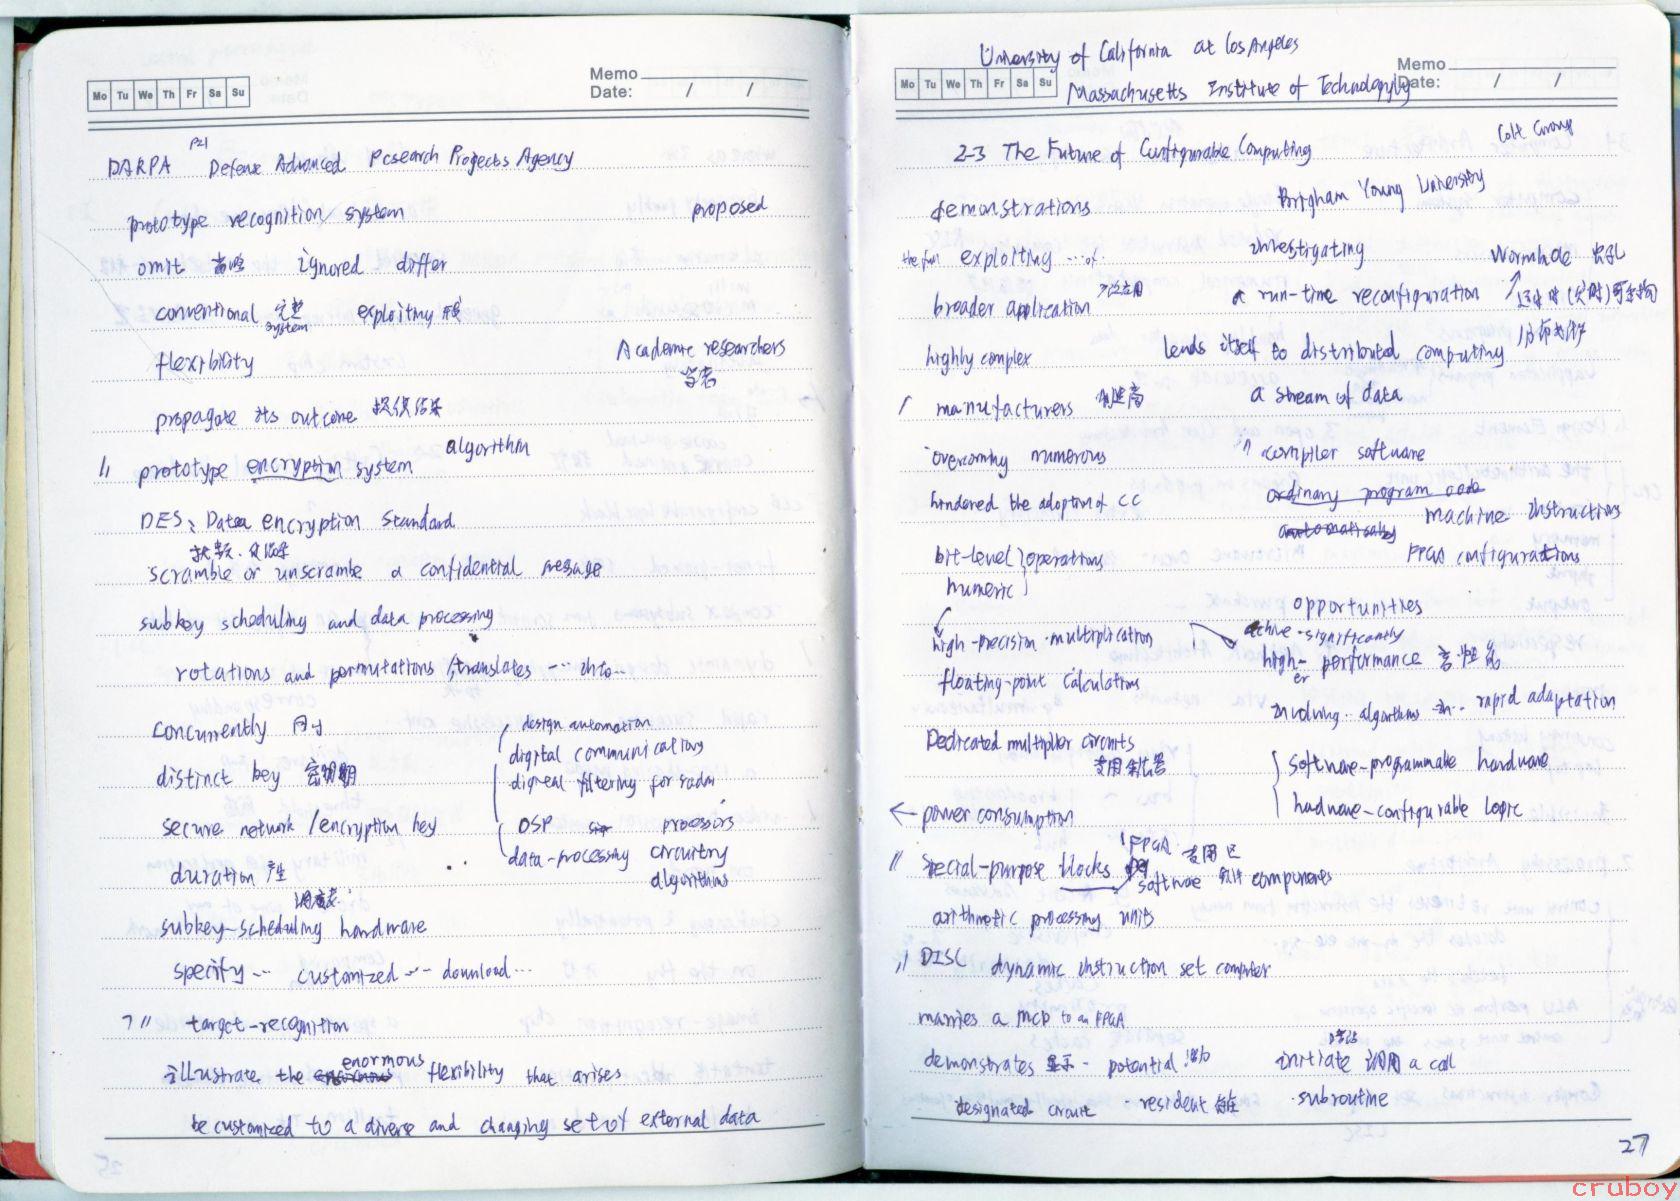 Mo Tu We Th Fr Sa Su
Memo
Date: / /
P21
DARPA Defense Advanced Pcsearch Projects Agency
prototype recognition system proposed
omit ignored differ
conventional exploitmy
system
flexibility Academic researchers
学者
propagate its outcome
algorithm
prototype encryption system
DES: Datea encryption Standard
scramble or unscrambe a confidential message
subkey scheduling and data processing
rotations and permutations /translates ... into..
concurrently
design automation
digital communications
distinct key 密钥
digital filtering for radar
secure network /encryption key
DSP processors
data-processing circuitry
algorithms
duration
调度表
subkey-scheduling hardware
specify ... customized ... download...
target-recognition
illustrate the enormous flexibility that arises
be customized to a diverse and changing set of external data
25
University of California at Los Angeles
Mo Tu We Th Fr Sa Su
Memo
Date: / /
Massachusetts Institute of Technology
2-3 The Future of Configurable Computing
demonstrations Brigham Young University
exploiting ...of. investigating Wormhole 虫孔
broader application a run-time reconfiguration
highly complex lends itself to distributed computing
manufacturers 制造商 a stream of data
overcoming numerous compiler software
hindered the adoption of CC ordinary program code
automatically machine instructions
bit-level operations FPGA configurations
numeric
opportunities
high-precision multiplication achive significantly
high- performance 高性能
er
floating-point calculations
involving.. algorithms .. rapid adaptation
Dedicated multiplier circuits
software-programmable hardware
hadware-configurable logic
← power consumption
FPGA 专用区
special-purpose blocks software 软件 components
arithmetic processing units
DISC dynamic instruction set computer
marries a MCP to an FPGA
demonstrates 显示 potential 潜力 initiate 调用 a call
designated circuit resident subroutine
27
cruboy